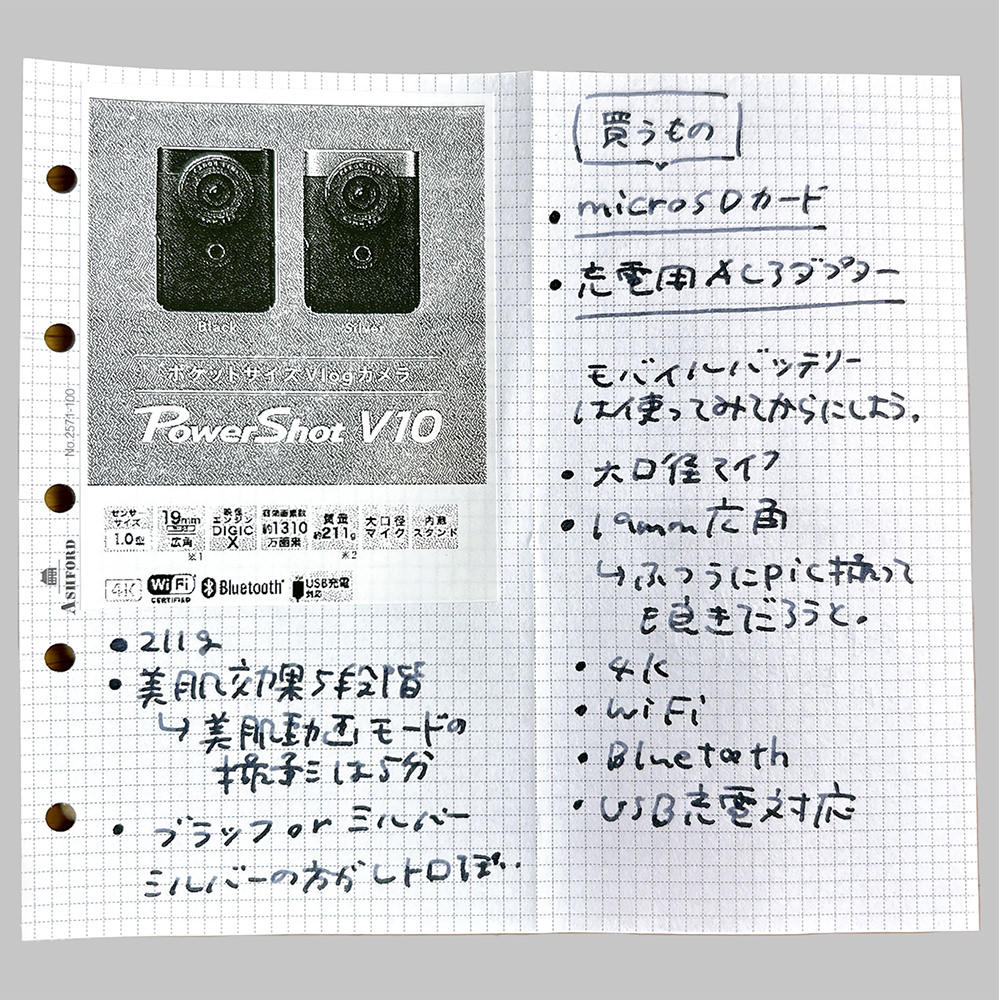 Black
Silver
ポケットサイズVlogカメラ
PowerShot V10
センサーサイズ 1.0型
19mm 広角 ※1
映像エンジン DIGIC X
有効画素数 約1310万画素
質量 約211g ※2
大口径マイク
内蔵スタンド
4K
WiFi CERTIFIED
Bluetooth
USB充電対応
No.2571-100
ASHFORD
• 211g
• 美肌効果5段階
↳ 美肌動画モードの
は5分
• ブラック or シルバー
シルバーの方がレトロぽい.
買うもの
• microSDカード
• 充電用ACアダプター
モバイルバッテリー
は使ってみてからにしよう。
• 大口径マイク
• 19mm広角
↳ ふつうにpic撮って
も良きだろうと。
• 4K
• WiFi
• Bluetooth
• USB充電対応